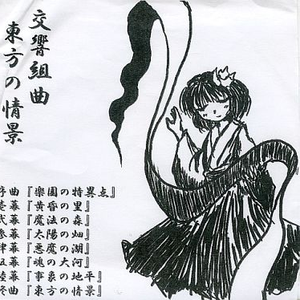 交響組曲
東方の情景
序曲『楽園の特異点』
壱幕『黄昏の里』
弐幕『魔法の森』
参幕『太陽の畑』
肆幕『悪魔の湖』
伍幕『魂の大河』
陸幕『事象の地平』
終曲『東方の情景』